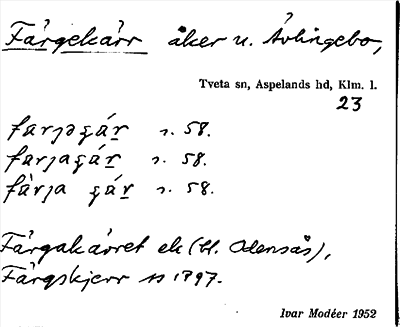 Färgekärr åker u. Ävlingebo,
Tveta sn, Aspelands hd, Klm. l.
23
farjəgár s. 58.
farjagár s. 58.
fàrja gár s. 58.
Färgakärret ek (bl. Odensås),
Färgskjerr 1897.
Ivar Modéer 1952